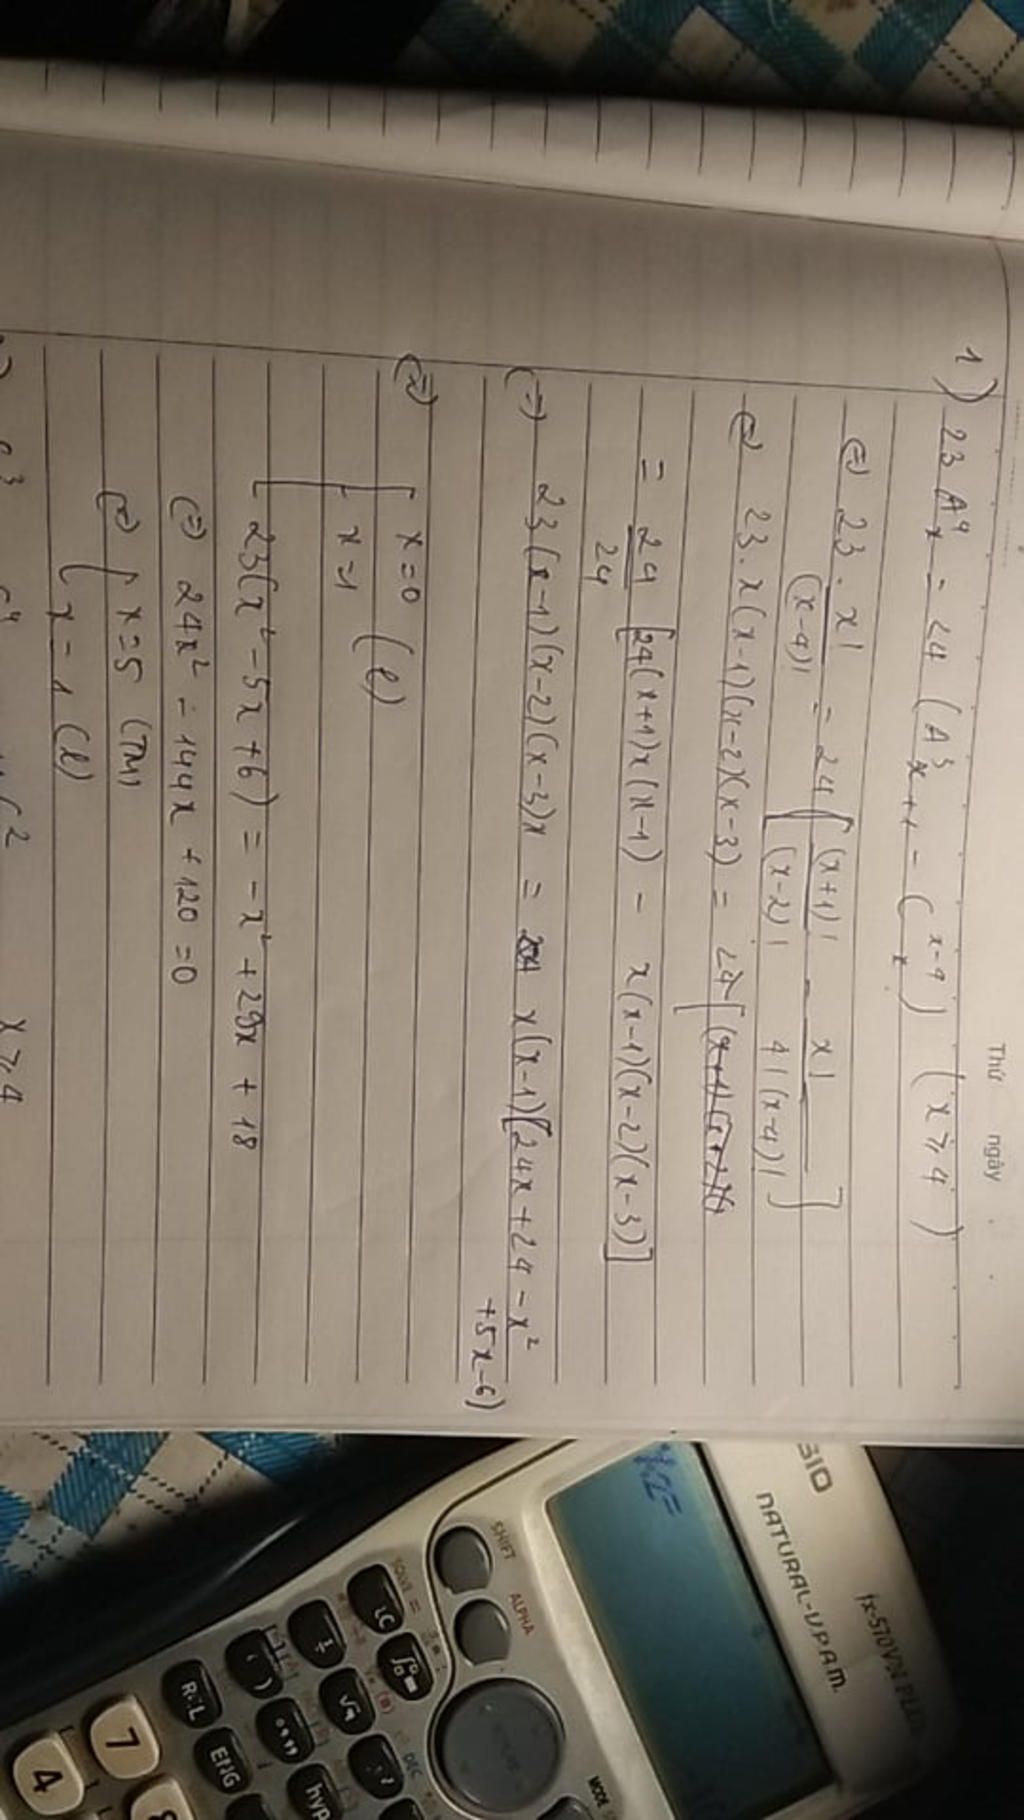 Thứ ngày
1) 23 A⁴ₓ = 24 (A³ₓ₊₁ - Cₓˣ⁻⁴) (x ≥ 4)
(=) 23 . x! / (x-4)! = 24 [ (x+1)! / (x-2)! - x! / 4!(x-4)! ]
(=) 23 . x(x-1)(x-2)(x-3) = 24 [
= 24/24 [24(x+1)x(x-1) - x(x-1)(x-2)(x-3)]
(=) 23(x-1)(x-2)(x-3)x = x(x-1)(24x+24-x²
+5x-6)
(=) [ x=0 (l)
x=1
23(x²-5x+6) = -x²+29x+18
(=) 24x² - 144x + 120 = 0
(=) { x=5 (TM)
x=1 (l)
x ≥ 4
fx-570VN PLUS
NATURAL-V.P.A.M.
x2=
SHIFT ALPHA MODE
SOLVE =
RCL ENG hyp
7 8
4